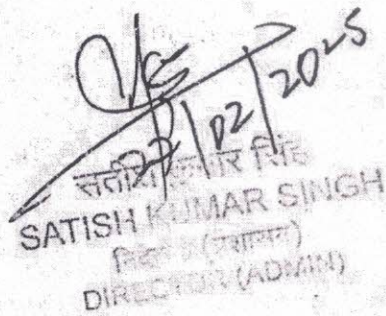 22/02/2025
सतीश कुमार सिंह
SATISH KUMAR SINGH
निदेशक (प्रशासन)
DIRECTOR (ADMIN)